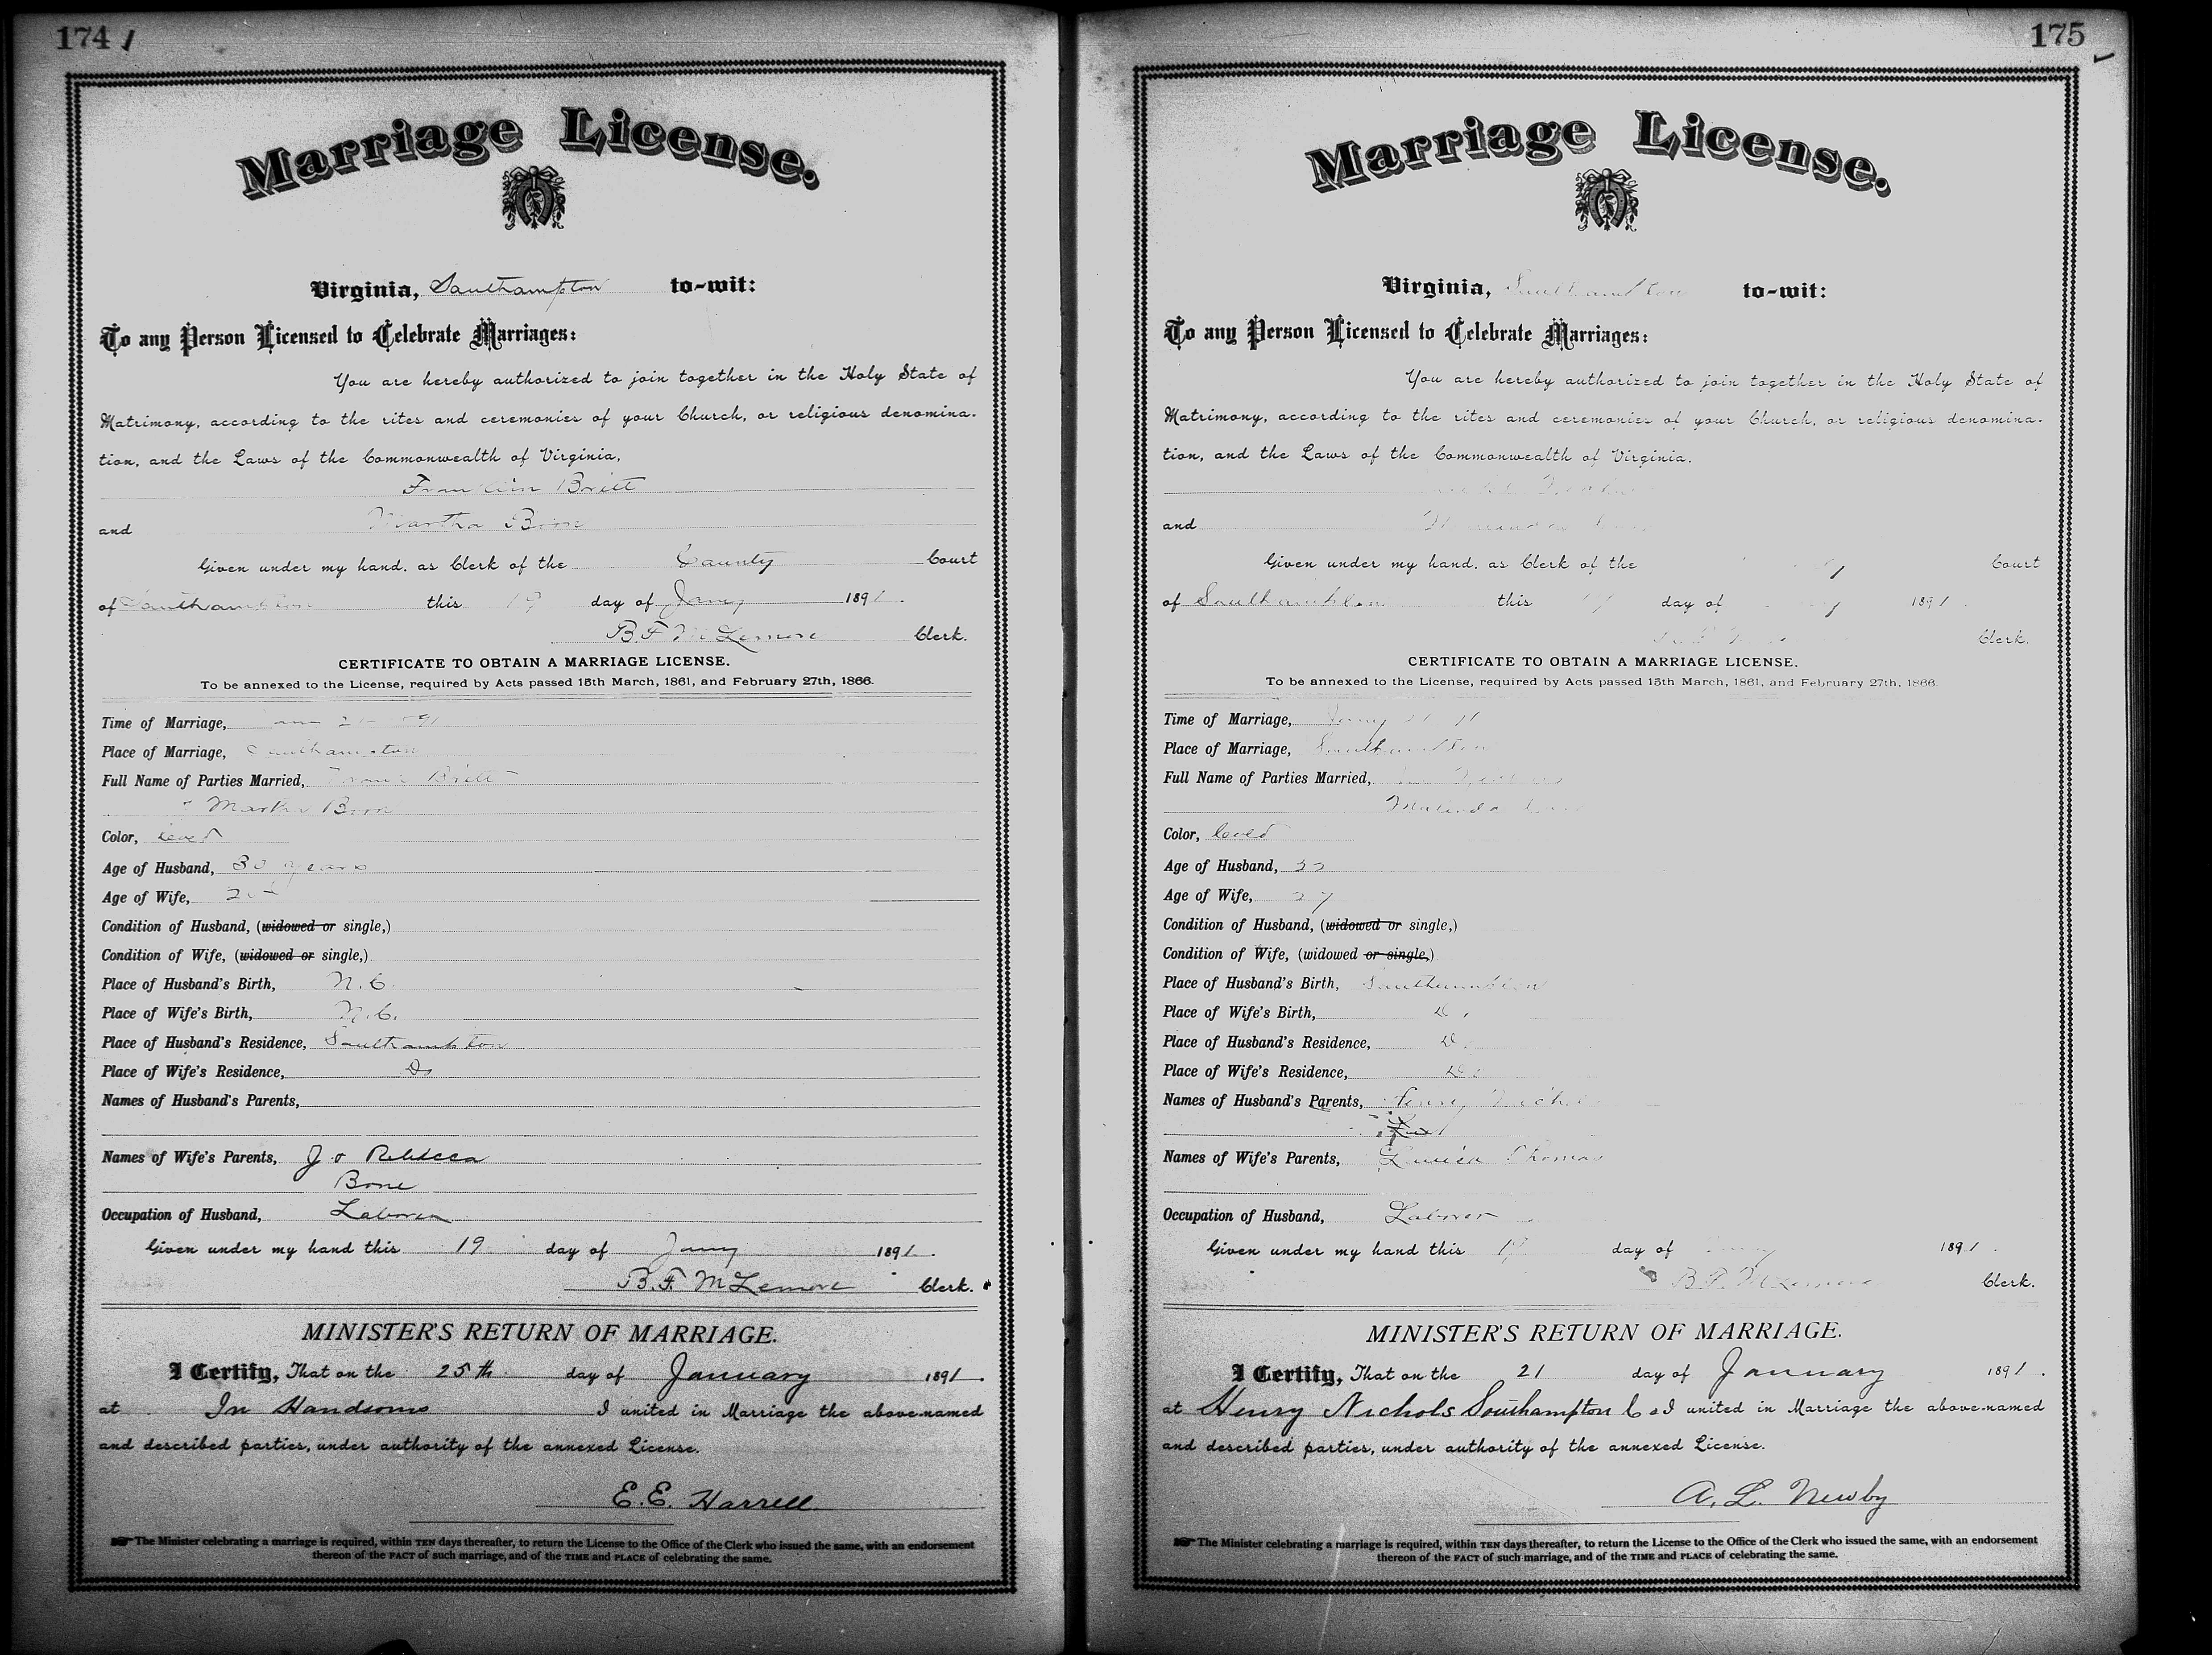 174
Marriage License.
Virginia, Southampton to-wit:
To any Person Licensed to Celebrate Marriages:
You are hereby authorized to join together in the Holy State of
Matrimony, according to the rites and ceremonies of your Church, or religious denomina-
tion, and the Laws of the Commonwealth of Virginia,
Britt
and Martha
Given under my hand, as Clerk of the County Court
of Southampton this 19 day of Jany 1891.
B. F. McLemore Clerk.
CERTIFICATE TO OBTAIN A MARRIAGE LICENSE.
To be annexed to the License, required by Acts passed 15th March, 1861, and February 27th, 1866.
Time of Marriage,
Place of Marriage, Southampton
Full Name of Parties Married, Britt
Martha
Color, Cold
Age of Husband, 30 years
Age of Wife,
Condition of Husband, (widowed or single,)
Condition of Wife, (widowed or single,)
Place of Husband's Birth, N. C.
Place of Wife's Birth, N. C.
Place of Husband's Residence, Southampton
Place of Wife's Residence, Do
Names of Husband's Parents,
Names of Wife's Parents, J. & Rebecca
Bone
Occupation of Husband, Laborer
Given under my hand this 19 day of Jany 1891.
B. F. McLemore Clerk.
MINISTER'S RETURN OF MARRIAGE.
I Certify, That on the 25th day of January 1891.
at In Handsoms I united in Marriage the above-named
and described parties, under authority of the annexed License.
E. E. Harrell
The Minister celebrating a marriage is required, within TEN days thereafter, to return the License to the Office of the Clerk who issued the same, with an endorsement
thereof of the FACT of such marriage, and of the TIME and PLACE of celebrating the same.
175
Marriage License.
Virginia, Southampton to-wit:
To any Person Licensed to Celebrate Marriages:
You are hereby authorized to join together in the Holy State of
Matrimony, according to the rites and ceremonies of your Church, or religious denomina-
tion, and the Laws of the Commonwealth of Virginia,
and
Given under my hand, as Clerk of the Court
of Southampton this day of 1891.
Clerk.
CERTIFICATE TO OBTAIN A MARRIAGE LICENSE.
To be annexed to the License, required by Acts passed 15th March, 1861, and February 27th, 1866.
Time of Marriage, Jany
Place of Marriage, Southampton
Full Name of Parties Married,
Malinda
Color, Cold
Age of Husband,
Age of Wife,
Condition of Husband, (widowed or single,)
Condition of Wife, (widowed or single,)
Place of Husband's Birth, Southampton
Place of Wife's Birth, Do
Place of Husband's Residence, Do
Place of Wife's Residence, Do
Names of Husband's Parents, Henry
Names of Wife's Parents, Louisa Thomas
Occupation of Husband, Laborer
Given under my hand this 19 day of 1891.
B. F. McLemore Clerk.
MINISTER'S RETURN OF MARRIAGE.
I Certify, That on the 21 day of January 1891.
at Henry Nichols Southampton Co I united in Marriage the above-named
and described parties, under authority of the annexed License.
A. L. Newby
The Minister celebrating a marriage is required, within TEN days thereafter, to return the License to the Office of the Clerk who issued the same, with an endorsement
thereon of the FACT of such marriage, and of the TIME and PLACE of celebrating the same.